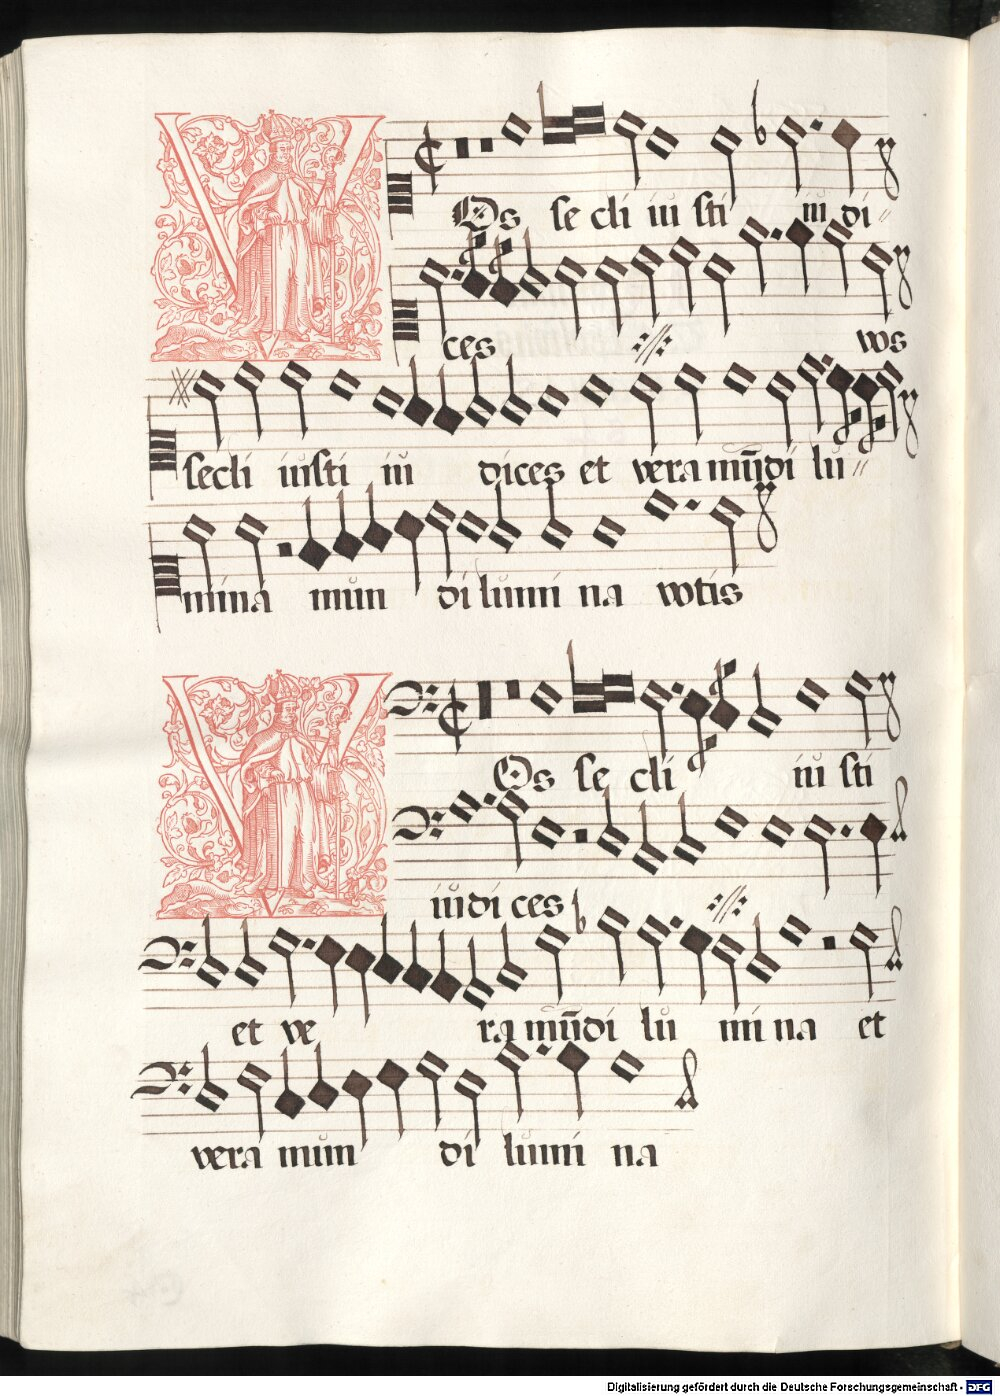 VOs se cli iu sti iu di
ces vos
secli iusti iu dices et vera mūdi lu
mina mun di lumi na votis
VOs se cli iu sti
iudi ces
et ve ra mūdi lu mi na et
vera mun di lumi na
Digitalisierung gefördert durch die Deutsche Forschungsgemeinschaft - DFG